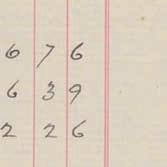 6 7 6
6 3 9
2 2 6